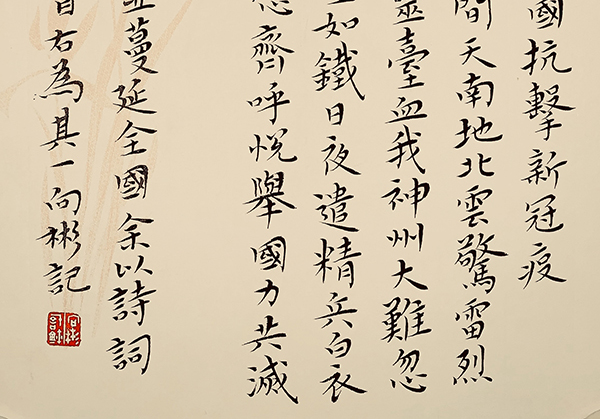 國抗擊新冠疫
間天南地北雲驚雷烈
靈臺血我神州大難忽
如鐵日夜遣精兵白衣
齊呼悅舉國力共滅
蔓延全國余以詩詞
右為其一向彬記